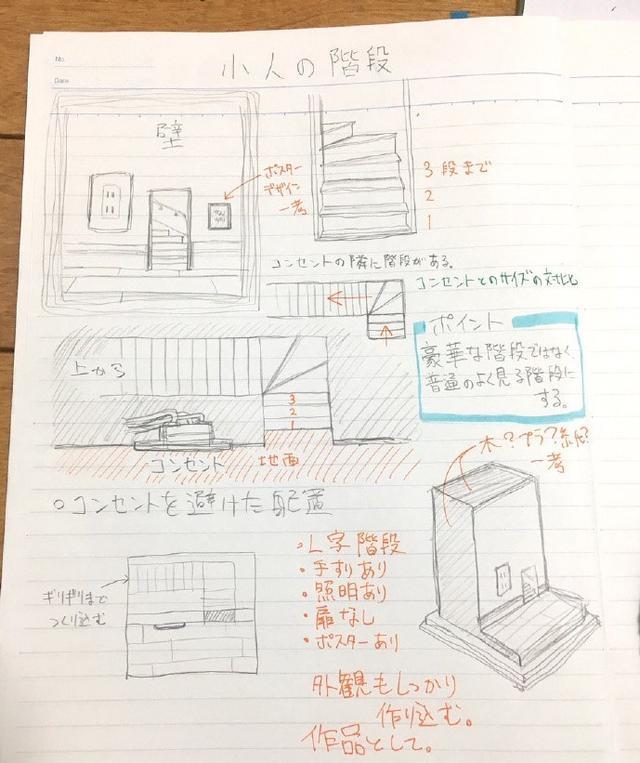 No.
Date
小人の階段
壁
ポスター
デザイン
一考
3段まで
2
1
コンセントの隣に階段がある。
コンセントとのサイズの対比
ポイント
豪華な階段ではなく、
普通のよく見る階段に
する。
上から
3
2
1
コンセント
地面
木?プラ?紙?
一考
○コンセントを避けた配置
ギリギリまで
つくり込む
・L字階段
・手すりあり
・照明あり
・扉なし
・ポスターあり
外観もしっかり
作り込む。
作品として。